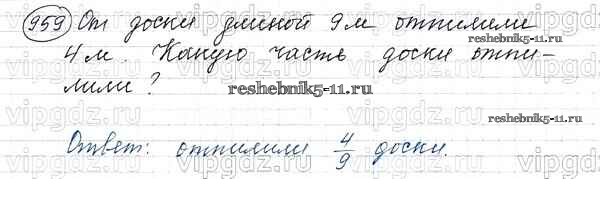 959 От доски длиной 9 м отпилили
4 м. Какую часть доски отпи-
лили?
reshebnik5-11.ru
reshebnik5-11.ru
reshebnik5-11.ru
Ответ: отпилили 4/9 доски.
vipgdz vipgdz vipgdz